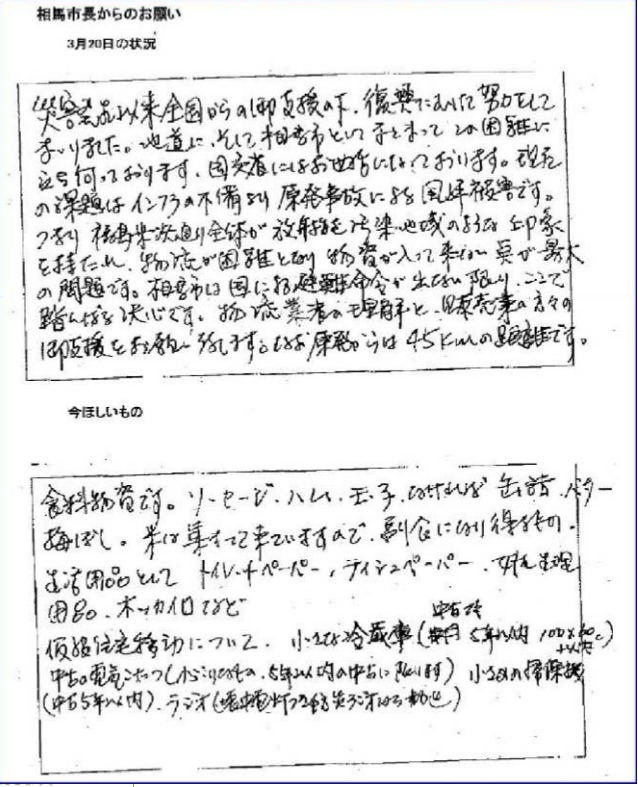 相馬市長からのお願い
3月20日の状況
災害発生以来全国からの御支援の下、復興にむけた努力をして
まいりました。地道に、そして相馬市としてまとまってこの困難に
立ち向っております。国交省にはお世話になっております。現在
の課題はインフラの不備より原発事故による風評被害です。
つまり福島県浜通り全体が放射能汚染地域のような印象
を持たれ、物流が困難となり物資が入って来ない事が最大
の問題です。相馬市は国による避難命令が出ない限り、ここで
踏んばる決心です。物流業者の理解と、関東の方々の
御支援をお願い致します。なお原発からは45kmの距離です。
今ほしいもの
食料物資です。ソーセージ、ハム、玉子、なければ缶詰、バター
梅ぼし。米は集まって来ていますので、副食になり得るもの。
生活用品として トイレットペーパー、ティシュペーパー、女性生理
用品、ホッカイロなど
仮設住宅移動について、小さな冷蔵庫(中古可 5年以内
中古の電気こたつ(小ぶりなもの、5年以内の中古に限ります) 小さめの掃除機
(中古5年以内)、ラジオ(懐中電灯